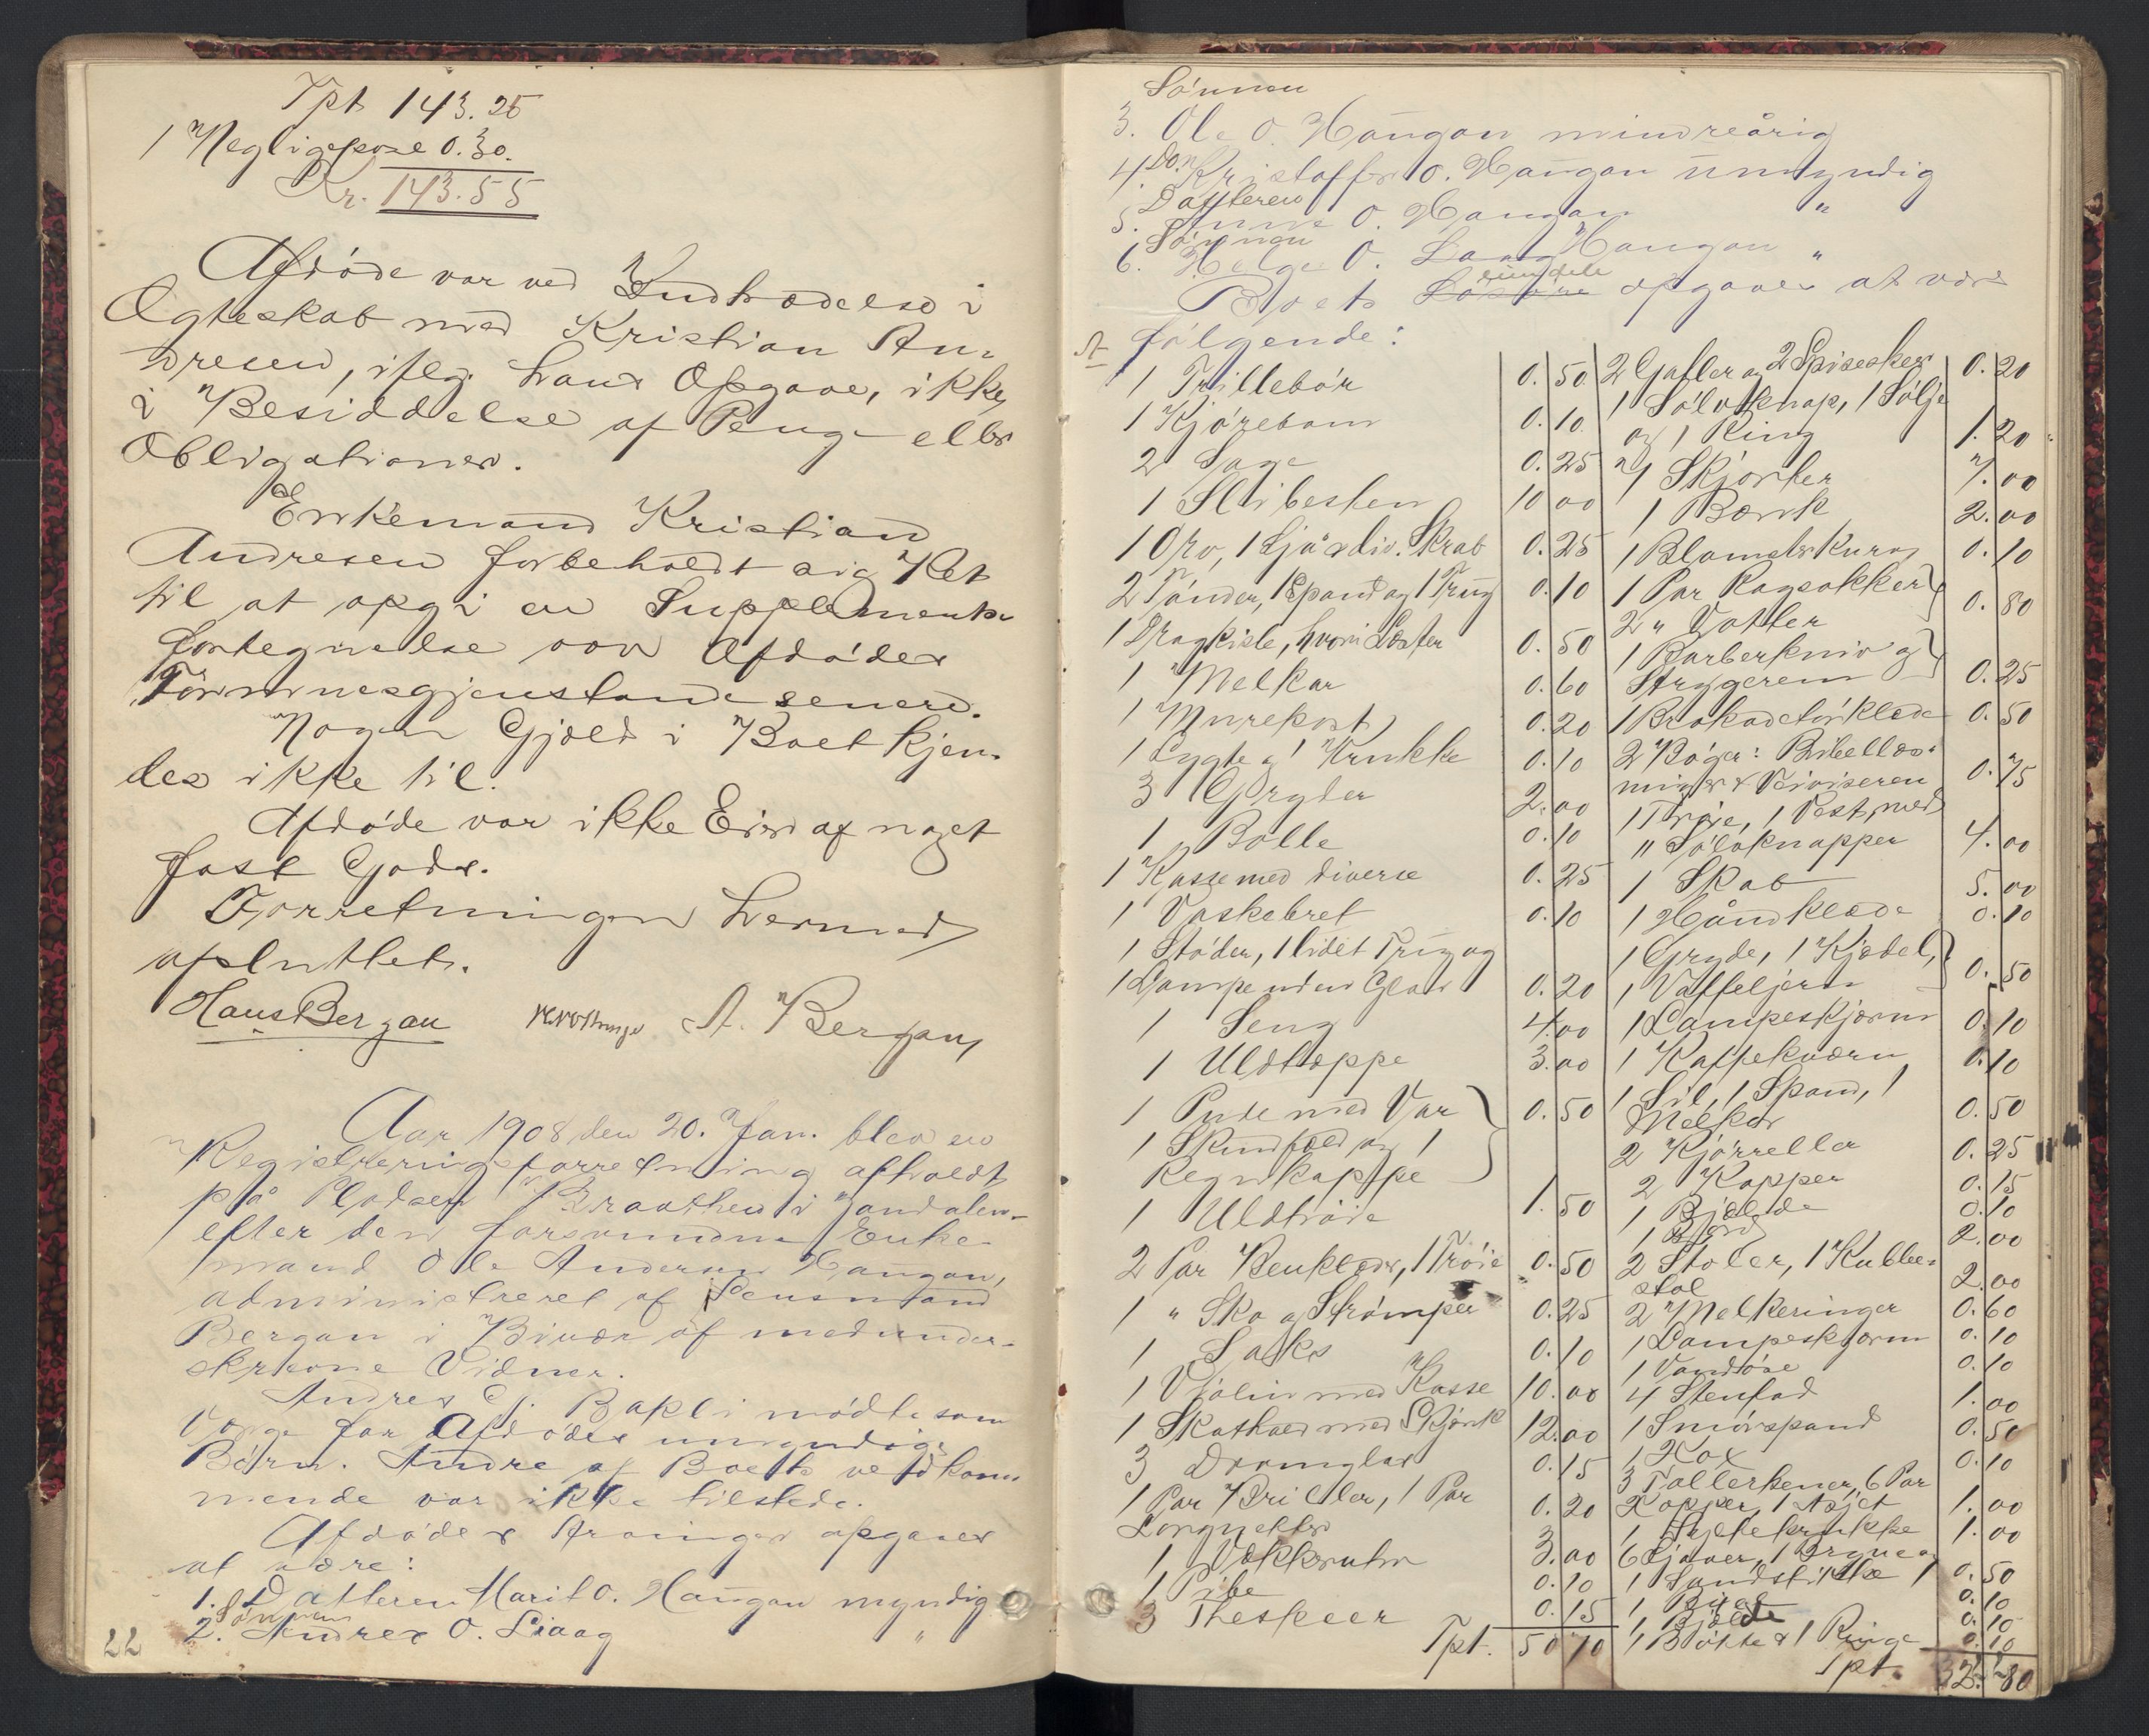 Tpt. 143.25
1 Negligepose 0.30.
Kr. 143.55
Afdøde var ved Indtrædelse i
Ægteskab med Kristian An-
dresen, iflg. hans Opgave, ikke
i Besiddelse af Penge eller
Obligationer.
Enkemand Kristian
Andresen forbeholdt sig Ret
til at opgi en Supplements-
fortegnelse over Afdødes
senere.
Nogen Gjæld i Boet kjen-
des ikke til.
Afdøde var ikke Eier af noget
fast Gods.
Forretningen hermed
afsluttet.
Hans Bergan A. Bergan
Aar 1908 den 20. Jan. blev en
Registreringsforretning afholdt
på Pladsen Braathen i
efter den forsvundne Enke-
mand Ole Andersen Haugan,
administreret af Lensmand
Bergan i Nærvær af medunder-
skrevne Vidner.
Andres G. Bakli mødte som
Verge for Afdødes umyndige
Børn. Andre af Boets vedkom-
mende var ikke tilstede.
Afdødes Arvinger opgaves
at være:
1. Datteren Marit O. Haugan myndig
2. Sønnen Andres O. Liaag "
22
Sønnen
3. Ole O. Haugan mindreårig
4. Do. Kristoffer O. Haugan umyndig
Datteren
5. Anne O. Haugan "
Sønnen
6. Helge O. Haugan "
Boets Eiendele opgaves at være
følgende:
1 Trillebør 0.50
1 Kjørebom 0.10
2 Sage 0.25
1 Slibesten 10 00
1 Øxe, 1 Ljå & div. Skrab 0.25
2 Tønder, 1 Spand og 1 Trug 0.10
1 Dragkiste, hvori Læster 0.50
1 Melkar 0.60
1 Murekost 0.20
1 Lygte og 1 Krukke 0.10
3 Gryder 2.00
1 Bolle 0.10
1 Kasse med diverse 0.25
1 Vaskebret 0.10
1 Støder, 1 lidet Trug og
1 Lampe uden Glas 0.20
1 Seng 4.00
1 Uldteppe 3.00
1 Pude med Var 0.50
1 Skindfeld og 1
Regnkappe
1 Uldtrøie 1.50
2 Par Benklæder, 1 Trøie 0.50
1 " Sko og Strømper 0.25
1 Saks 0.10
1 Violin med Kasse 10.00
1 Skathol med Skjænk 12.00
3 Dramglas 0.15
1 Par Briller, 1 Par 0.20
Lorgnetter
1 Vækkeruhr 3.00
1 Pibe 0.10
3 Theskeer 0.15
Tpt. 50 70
2 Gafler og 2 Spiseskeer 0.20
1 Sølvknap, 1 Sølje
og 1 Ring 1.20
7 Skjorter 7.00
1 Bænk 2.00
1 Blomsterkurv 0.10
1 Par Ragsokker
2 " Votter 0.80
1 Barberkniv og
Strygerem 0.25
1 Brokadetørklæde 0.50
2 Bøger: Bibellæs-
ninger & Veiviseren 0.75
1 Trøie, 1 Vest, med
11 Sølvknapper 4.00
1 Skab 5.00
1 Håndklæde 0.10
1 Gryde, 1 Kjedel,
1 Vaffeljern 0.50
1 Lampeskjærm 0.10
1 Kaffekværn 0.10
1 Sil, 1 Spand, 1
Melkar 0.50
2 Kjørreller 0.25
2 Kopper 0.15
1 Bjelde 0.10
1 Bord 2.00
2 Stoler, 1 Kubbe-
stol 2.00
2 Melkeringer 0.60
1 Lampeskjærm 0.10
1 Vandøse 0.10
4 Stenfad 1.00
1 Smørspand 0.50
1 0.10
3 Tallerkener, 6 Par
Kopper, 1 Asjet 1.00
1 Syltekrukke 1.00
6 Ljaaer, 1 Bryne og
1 Sandstikke 0.50
1 0.10
1 Bjelde 0.10
1 Bøtte & 1 Ringe 0.10
Tpt. 32.80